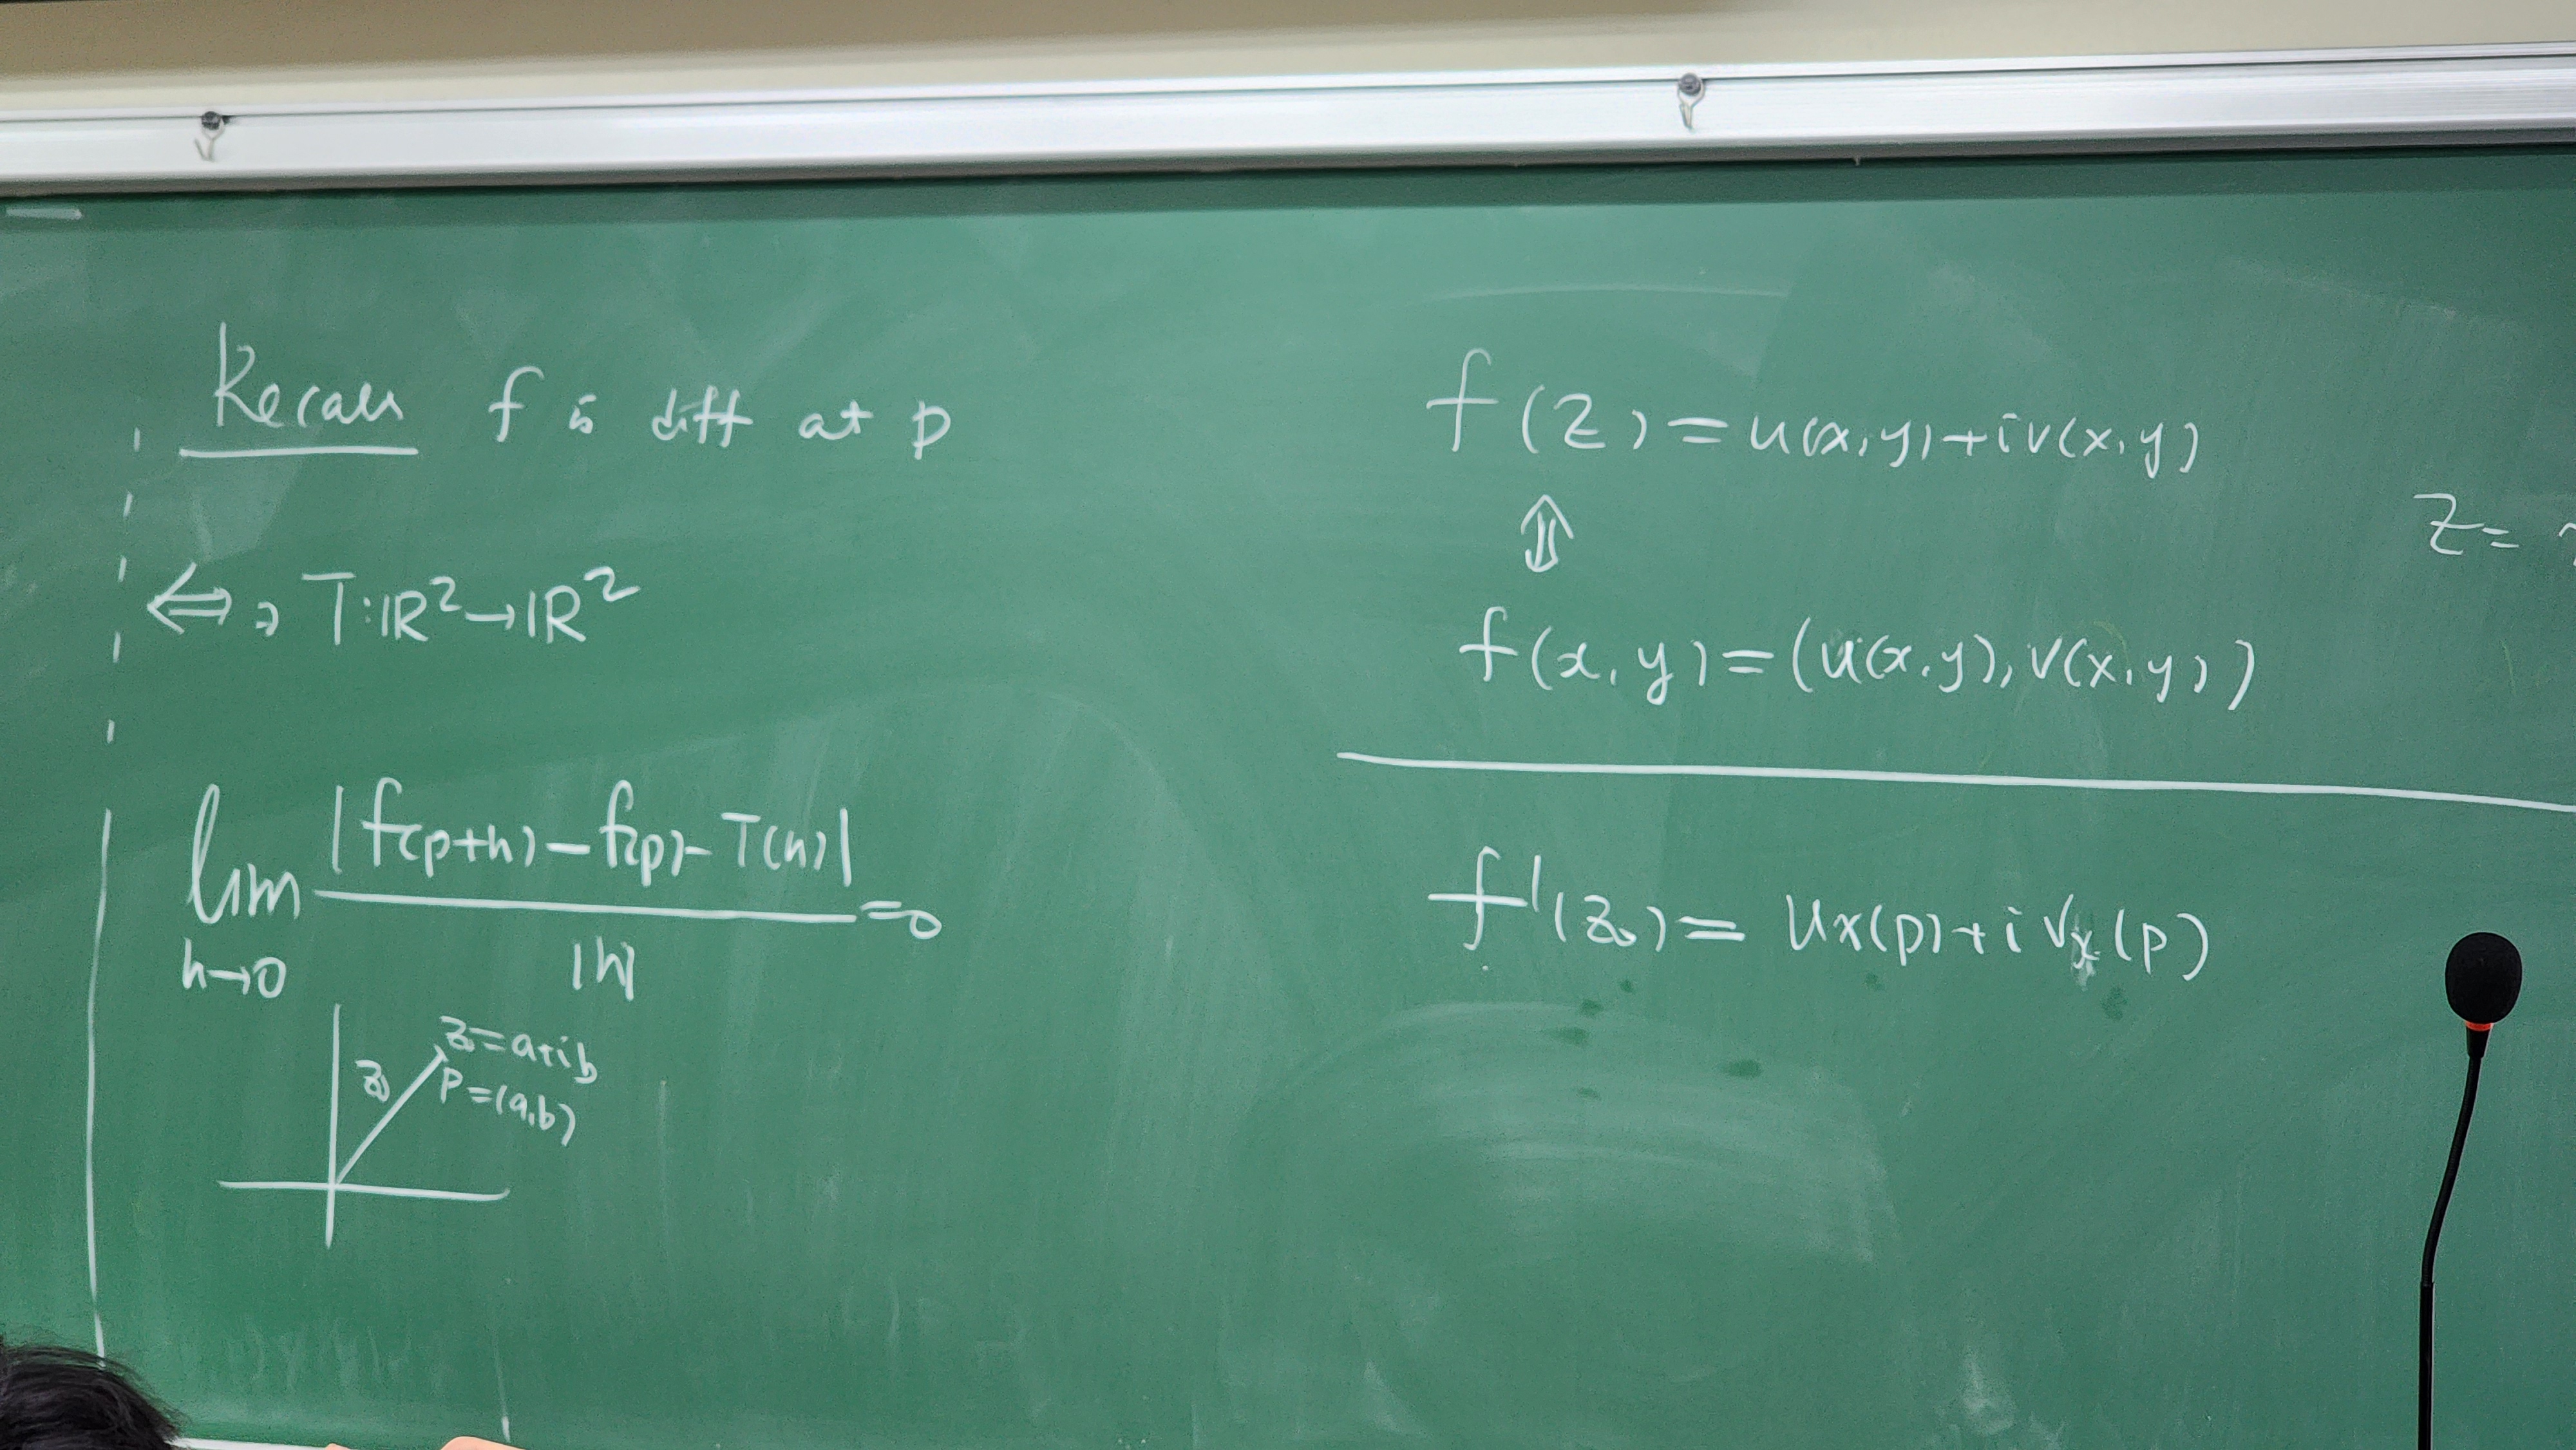 Recall f is diff at p
⇔ ∃ T:ℝ²→ℝ²
lim h→0 |f(p+h)-f(p)-T(h)| / |h| =0
z₀=a+ib
z₀
p=(a,b)
f(z)=u(x,y)+iv(x,y)
⇕
f(x,y)=(u(x,y),v(x,y))
z=
f'(z₀)= ux(p)+i vx(p)